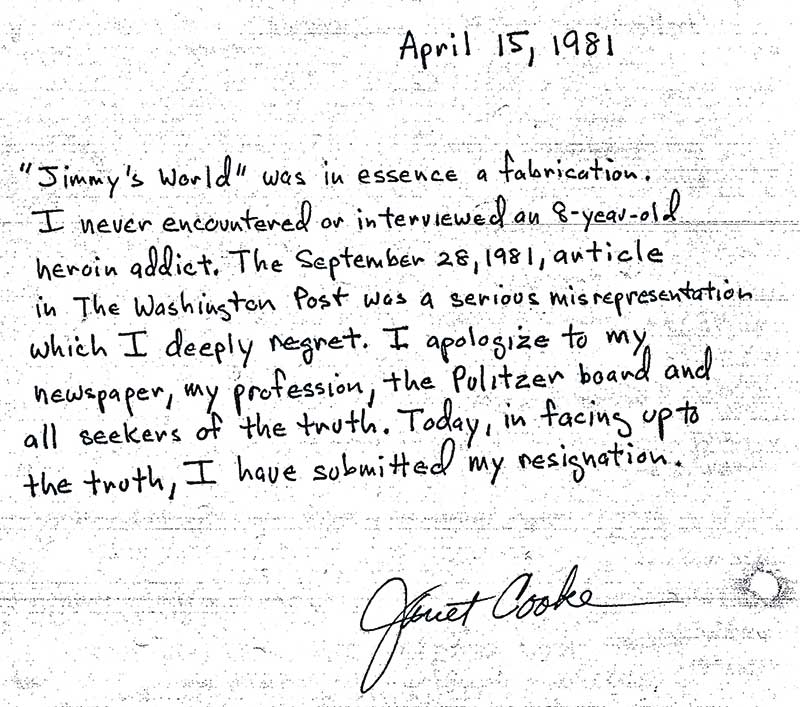 April 15, 1981
"Jimmy's World" was in essence a fabrication.
I never encountered or interviewed an 8-year-old
heroin addict. The September 28, 1981, article
in The Washington Post was a serious misrepresentation
which I deeply regret. I apologize to my
newspaper, my profession, the Pulitzer board and
all seekers of the truth. Today, in facing up to
the truth, I have submitted my resignation.
Janet Cooke